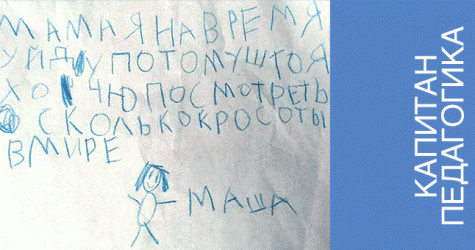 МАМА Я НА ВРЕМЯ
УЙДУ ПОТОМУ ШТО Я
ХОЧЮ ПОСМОТРЕТЬ
СКОЛЬКО КРОСОТЫ
В МИРЕ
МАША
КАПИТАН
ПЕДАГОГИКА